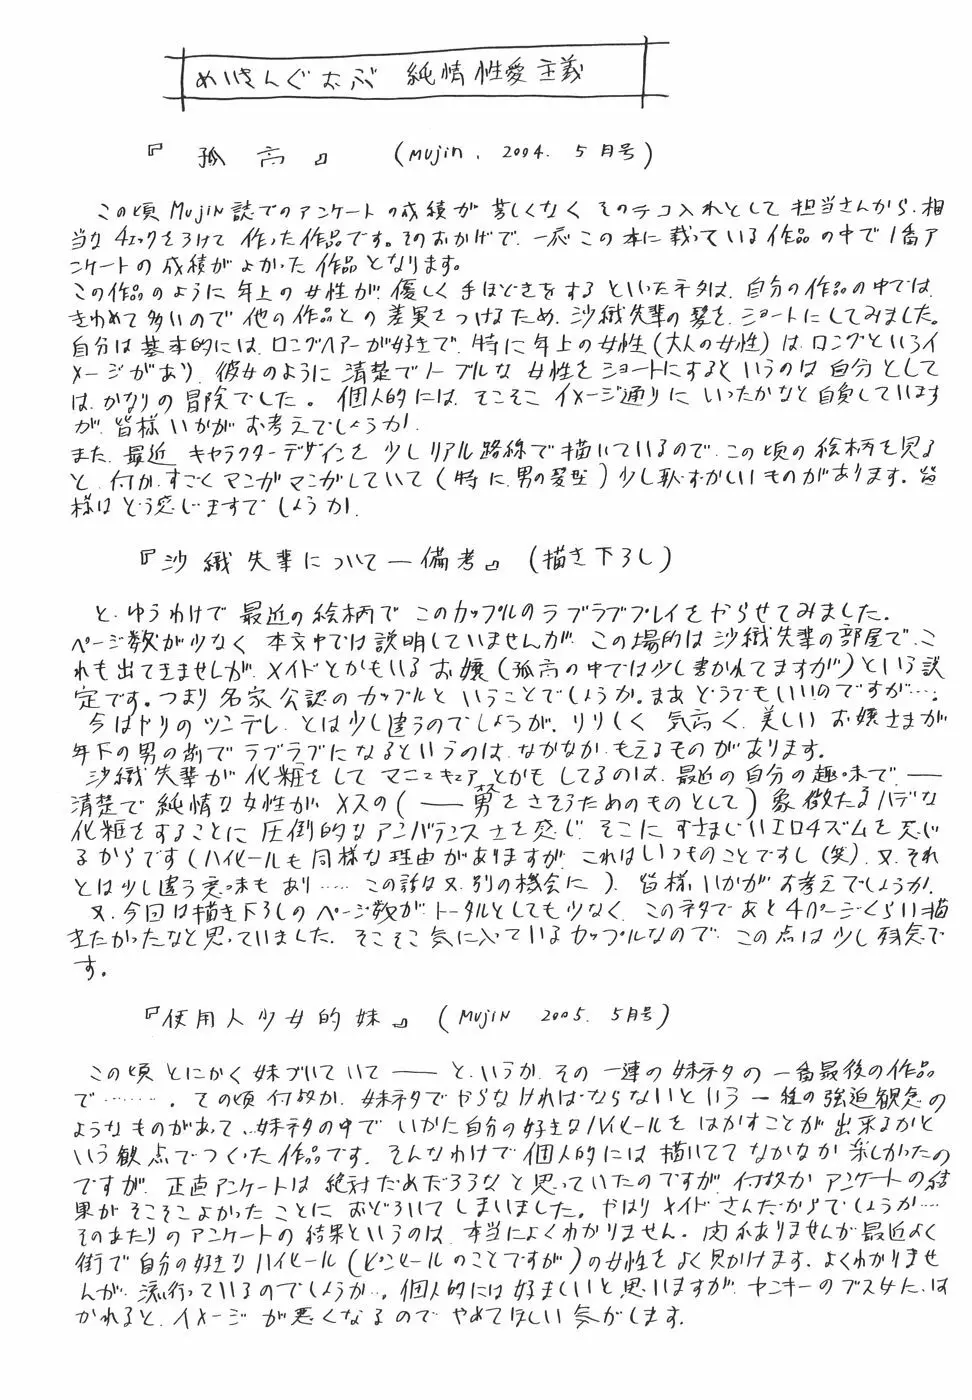 めいきんぐおぶ 純情性愛主義
『孤高』 (MUJIN. 2004. 5月号)
この頃MUJIN誌でのアンケートの成績が芳しくなくそのテコ入れとして担当さんから、相
当なチェックをうけて作った作品です。そのおかげで、一応この本に載っている作品の中で1番ア
ンケートの成績がよかった作品となります。
この作品のように年上の女性が、優しく手ほどきをするといったネタは、自分の作品の中では、
きわめて多いので他の作品との差異をつけるため、沙織先輩の髪を、ショートにしてみました。
自分は基本的には、ロングヘアーが好きで、特に年上の女性(大人の女性)は、ロングというイ
メージがあり、彼女のように清楚でノーブルな女性をショートにするというのは自分として
は、かなりの冒険でした。個人的には、そこそこイメージ通りにいったかなと自負しています
が、皆様いかがお考えでしょうか。
また、最近キャラクターデザインを少しリアル路線で描いているので、この頃の絵柄を見る
と、何か、すごくマンガマンガしていて(特に、男の髪型)少し恥ずかしいものがあります。皆
様はどう感じますでしょうか。
『沙織先輩について―備考』(描き下ろし)
と、ゆうわけで最近の絵柄でこのカップルのラブラブプレイをやらせてみました。
ページ数が少なく本文中では説明していませんが、この場所は沙織先輩の部屋で、こ
れも出てきませんが、メイドとかもいるお嬢(孤高の中では少し書かれてますが)という設
定です。つまり名家公認のカップルということでしょうか。まあどうでもいいのですが…。
今はやりのツンデレ、とは少し違うのでしょうが、りりしく気高く、美しいお嬢さまが
年下の男の前でラブラブになるというのは、なかなか、もえるものがあります。
沙織先輩が化粧をしてマニュキュアとかもしてるのは、最近の自分の趣味で、――
清楚で純情な女性が、メスの(――男をさそうためのものとして)象徴たるハデな
化粧をすることに圧倒的なアンバランスさを感じ、そこにすさまじいエロチズムを感じ
るからです(ハイヒールも同様な理由がありますが、これはいつものことですし(笑)、又、それ
とは少し違う意味もあり……この話は又、別の機会に)。皆様、いかがお考えでしょうか。
又、今回は描き下ろしのページ数が、トータルとしても少なく、このネタであと4ページくらい描
きたかったなと思っていました。そこそこ気に入っているカップルなので、この点は少し残念で
す。
『使用人少女的妹』(MUJIN 2005. 5月号)
この頃とにかく妹づいていて――と、いうか、その一連の妹ネタの一番最後の作品
で………。この頃何故か、妹ネタでやらなければならないという一種の強迫観念の
ようなものがあって、妹ネタの中でいかに自分の好きなハイヒールをはかすことが出来るかと
いう観点でつくった作品です。そんなわけで個人的には描いててなかなか楽しかったの
ですが、正直アンケートは絶対だめだろうなと思っていたのですが、何故かアンケートの結
果がそこそこよかったことにおどろいてしまいました。やはりメイドさんだからでしょうか…
そのあたりのアンケートの結果というのは、本当によくわかりません。関係ありませんが最近よく
街で自分の好きなハイヒール(ピンヒールのことですが)の女性をよく見かけます、よくわかりませ
んが、流行っているのでしょうか…。個人的には好ましいと思いますが、ヤンキーのブス女に、は
かれると、イメージが悪くなるのでやめてほしい気がします。